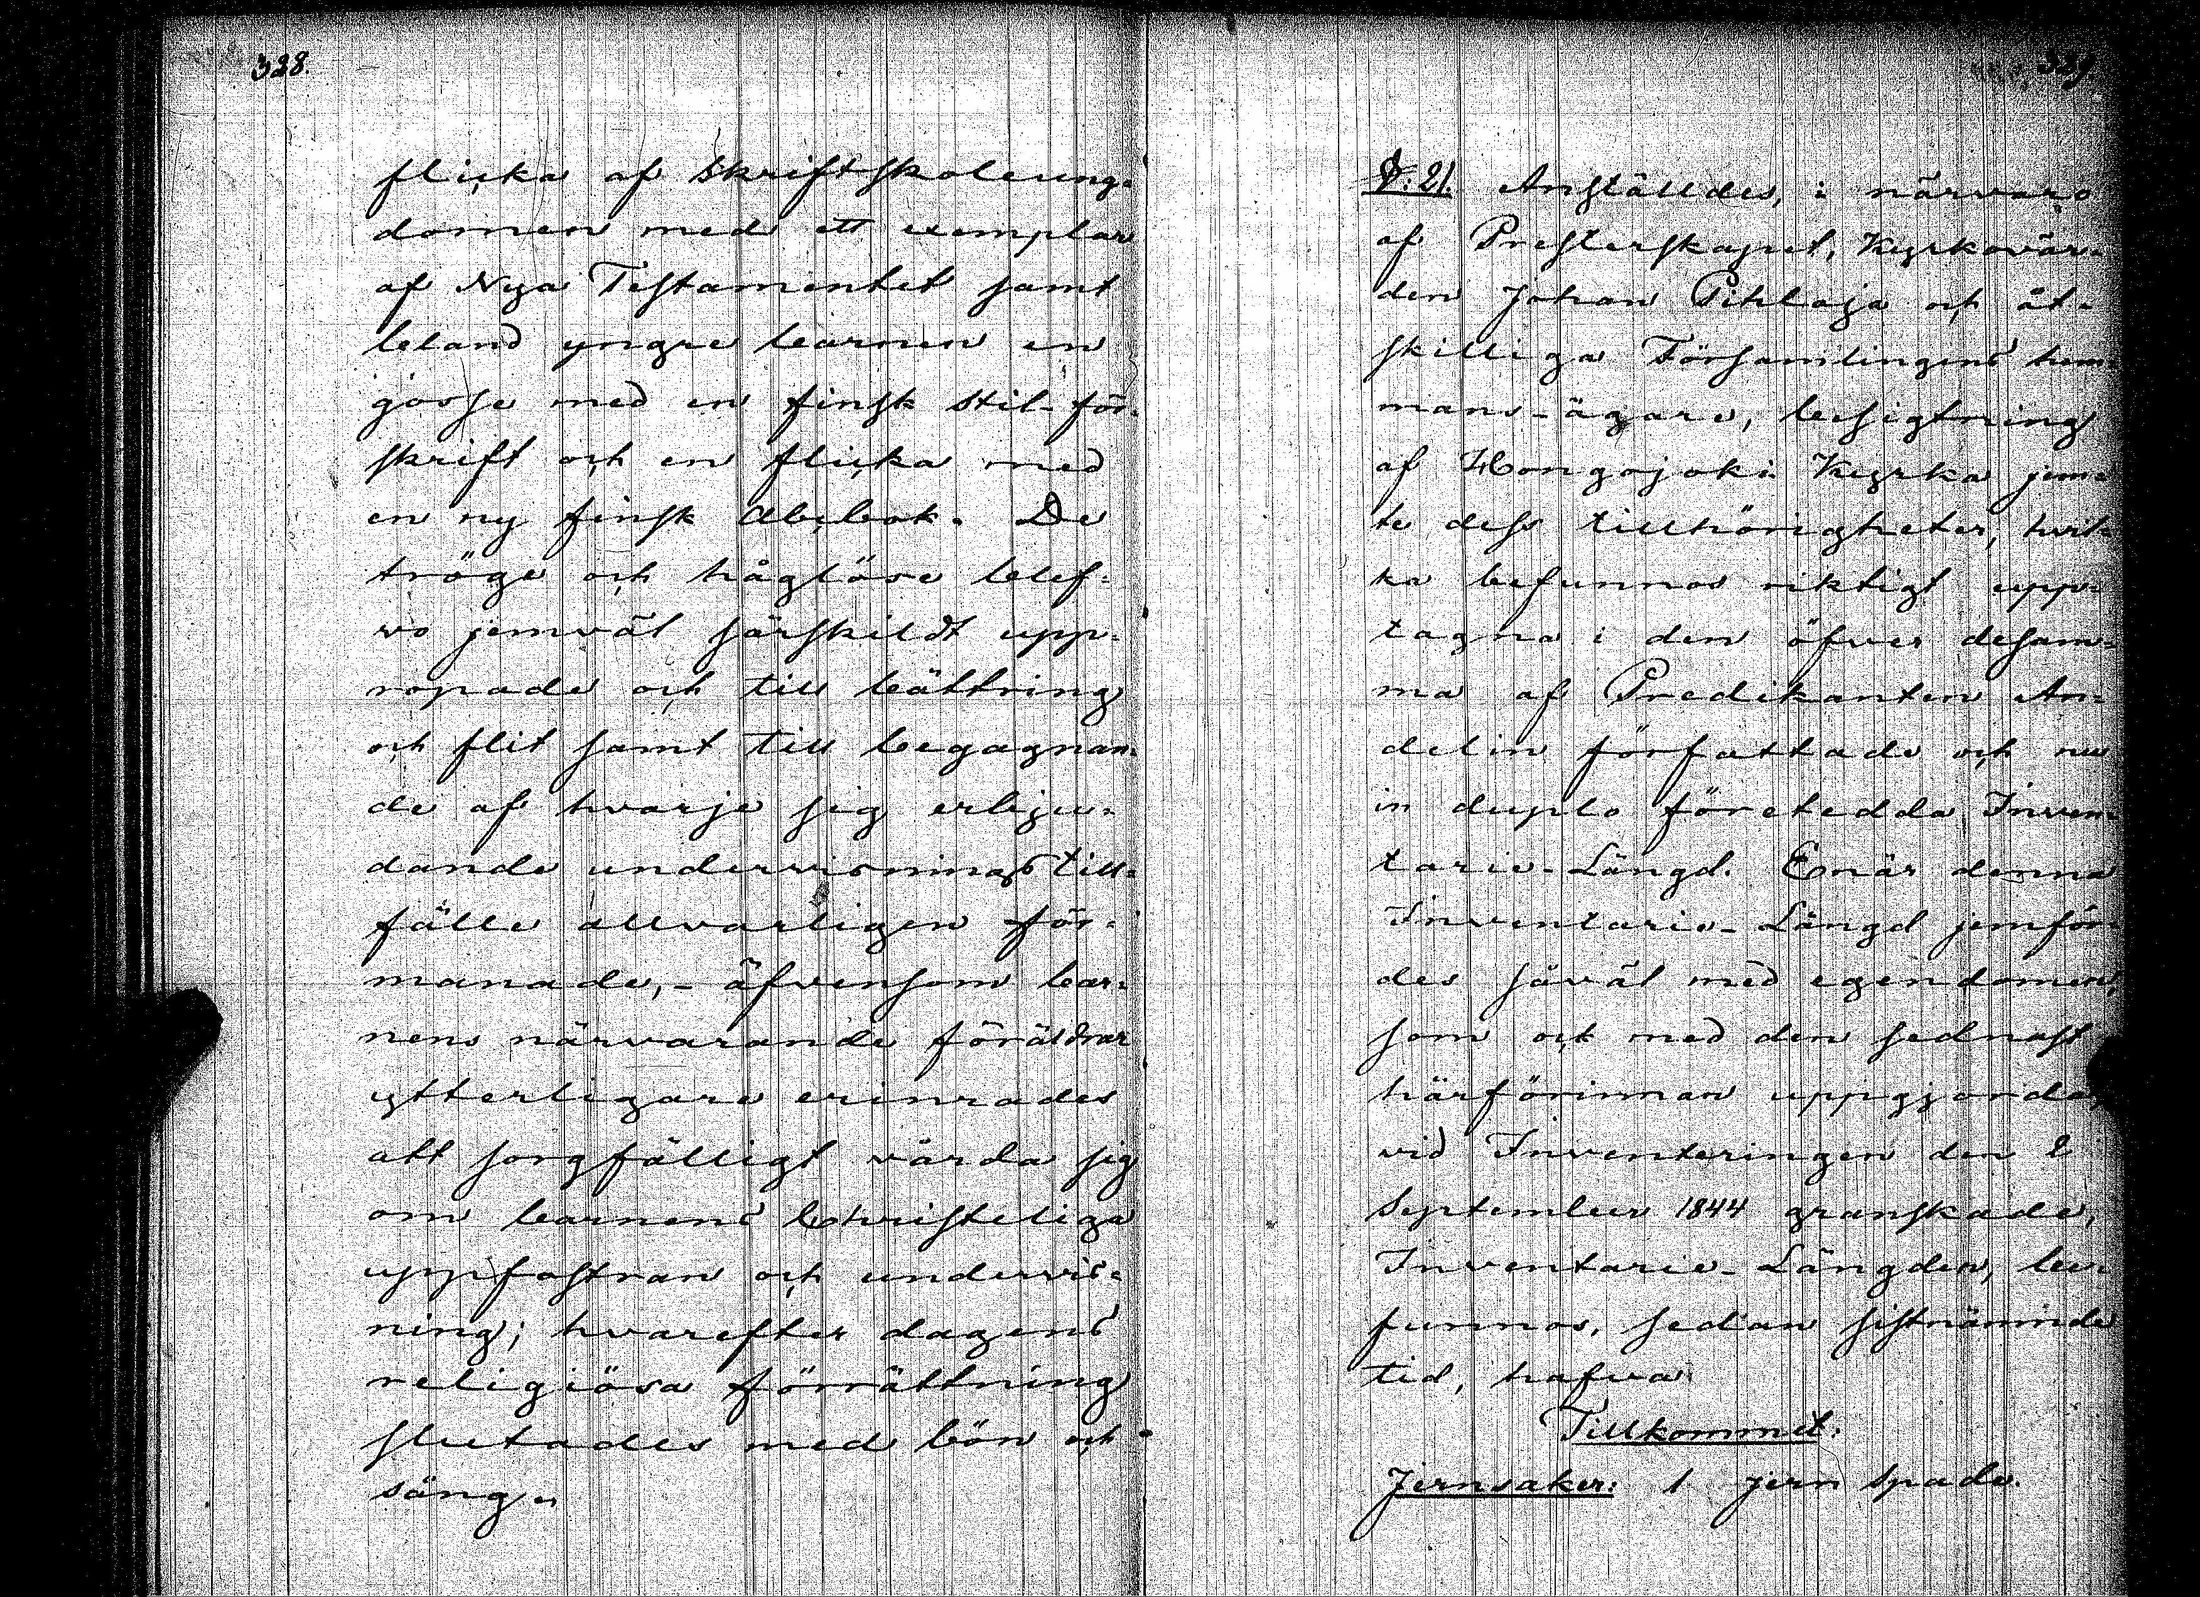 328.
flicka af Skriftskoleung=
domen med ett exemplar
af Nya Testamentet samt
bland yngre barnen en
gosse med en finsk stil-för=
skrift och en flicka med
en ny finsk Abcbok. De
tröge och håglöse blef=
vo jemväl särskildt upp=
ropade och till bättring
och flit samt till begagnan=
de af hvarje sig erbju=
dande undervisningstill=
fälle allvarligen för=
manade,- äfvensom bar=
nens närvarande föräldrar
ytterligare erinrades
att sorgfälligt vårda sig
om barnens Christeliga
uppfostran och undervis=
ning; hvarefter dagens
religiösa förrättning
slutades med bön och
sång.
329.
§: 2). Anställdes, i närvaro
af Presterskapet, Kyrkovär=
den Johan Pihlaja och åt=
skilliga Församlingens hem=
mans-ägare, besigtning
af Hongojoki Kyrka jem=
te dess tillhörigheter, hvil=
ka befunnos riktigt upp=
tagna i den öfver desam=
ma af Predikanten An=
delin författade och nu
in duplo företedda Inven=
tarie-Längd. Enär denna
Inventarie-Längd jemför=
des såväl med egendomen,
som ock med den sednast
härförinnan uppgjorda,
vid Inventeringen den 2
September 1844 granskade,
Inventarie-Längden, be=
funnos, sedan sistnämnde
tid, hafva
Tillkommit:
Jernsaker: 1 jern Spade.